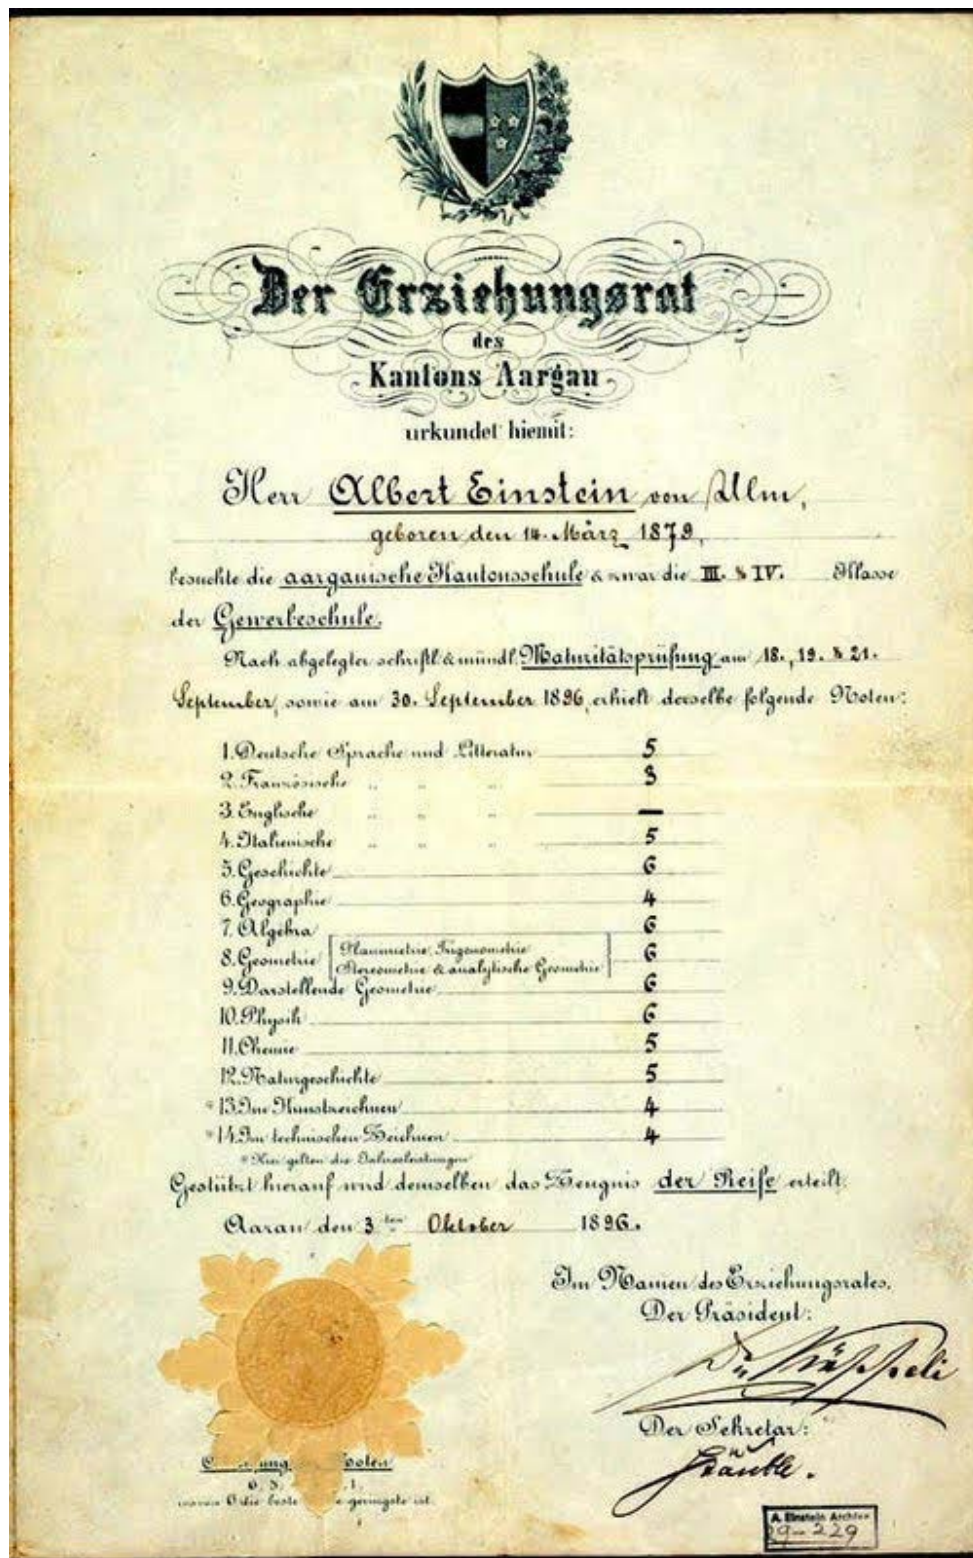 Der Erziehungsrat
des
Kantons Aargau
urkundet hiemit:
Herr Albert Einstein von Ulm,
geboren den 14. März 1879,
besuchte die aargauische Kantonsschule & zwar die III. & IV. Klasse
der Gewerbeschule.
Nach abgelegter schriftl. & mündl. Maturitätsprüfung am 18., 19. & 21.
September, sowie am 30. September 1896, erhielt derselbe folgende Noten:
1. Deutsche Sprache und Litteratur 5
2. Französische " " " 3
3. Englische " " " —
4. Italienische " " " 5
5. Geschichte 6
6. Geographie 4
7. Algebra 6
8. Geometrie [Planimetrie, Trigonometrie
Stereometrie & analytische Geometrie] 6
9. Darstellende Geometrie 6
10. Physik 6
11. Chemie 5
12. Naturgeschichte 5
* 13. Im Kunstzeichnen 4
* 14. Im technischen Zeichnen 4
* Hier gelten die Jahresleistungen
Gestützt hierauf wird demselben das Zeugnis der Reife erteilt.
Aarau den 3ten Oktober 1896.
Im Namen des Erziehungsrates,
Der Präsident:
Der Sekretär:
Noten
6. 5. 1.
wovon 6 die beste geringste ist.
A. Einstein Archive
29-229